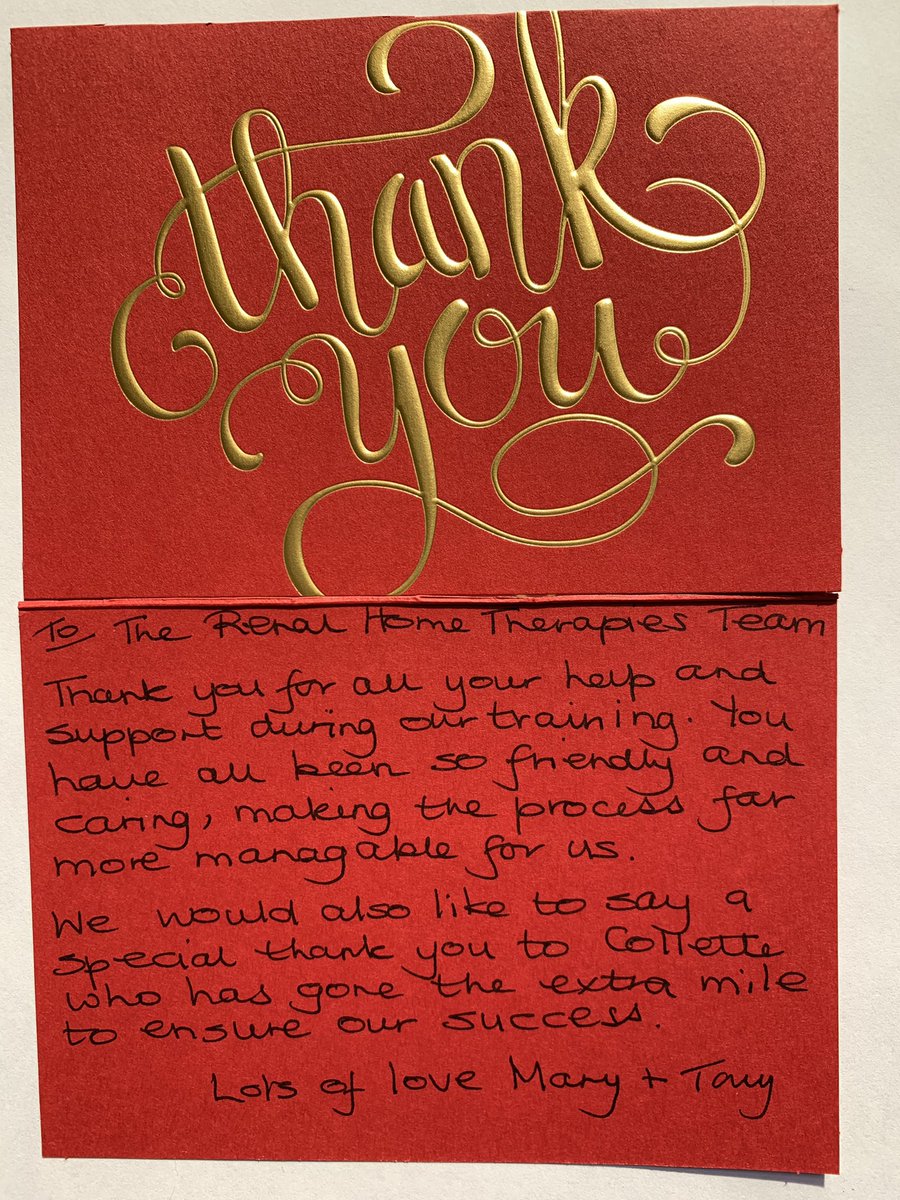 thank
you
To The Renal Home Therapies Team
Thank you for all your help and
support during our training. You
have all been so friendly and
caring, making the process far
more managable for us.
We would also like to say a
special thank you to Collette
who has gone the extra mile
to ensure our success.
Lots of love Mary + Tony